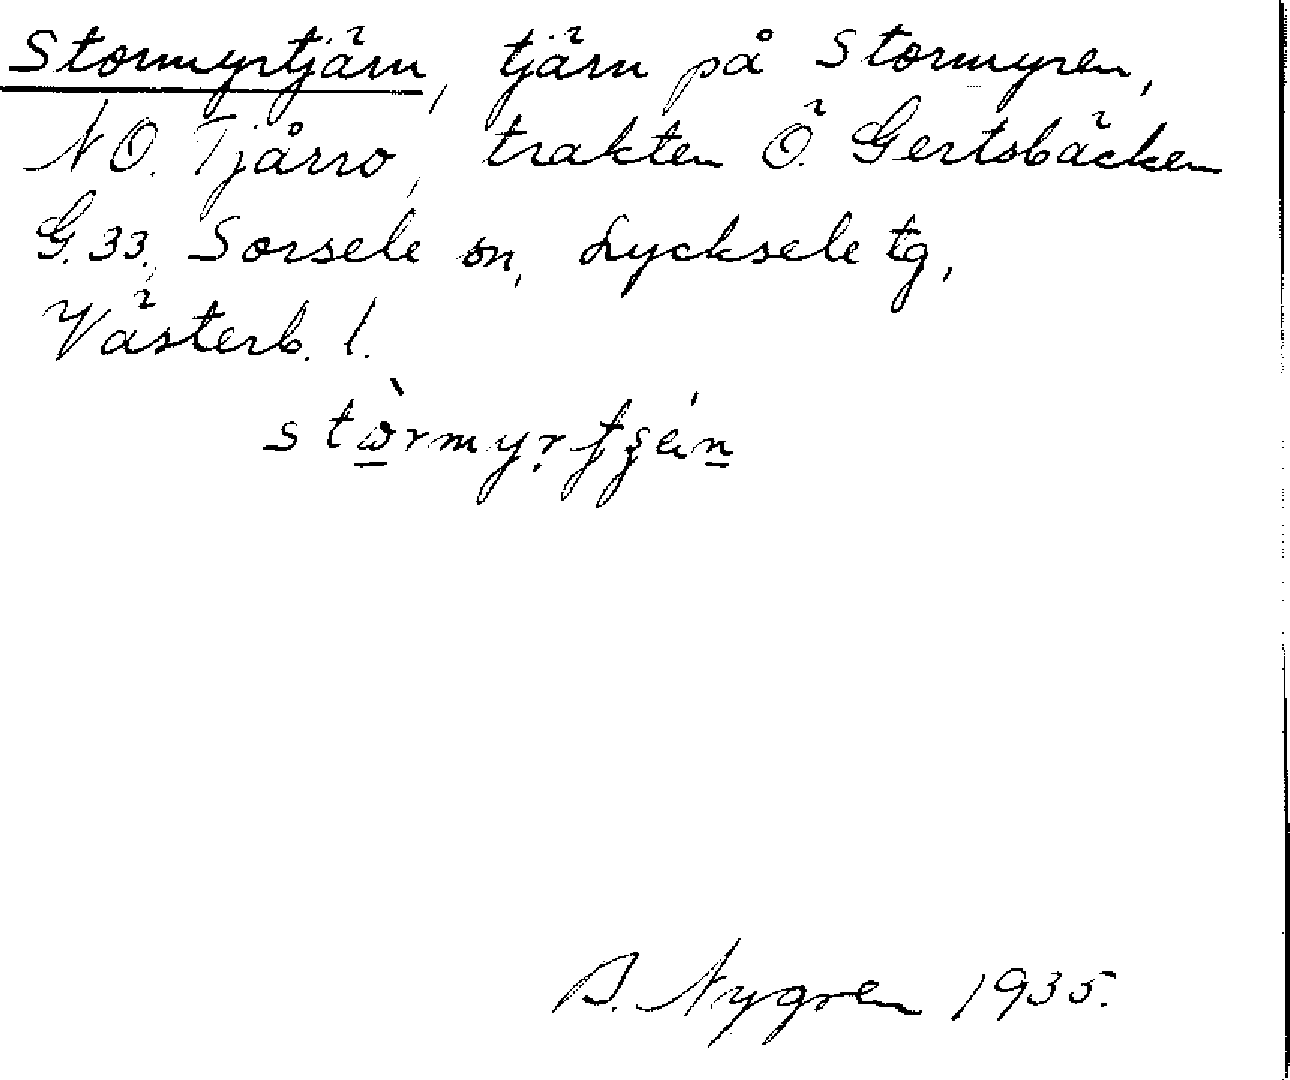 Stormyrtjärn, tjärn på Stormyren,
NO. Tjårro, trakten Ö. Gertsbäcken
G. 33, Sorsele sn, Lycksele tg,
Västerb. l.
A. Nygren 1935.